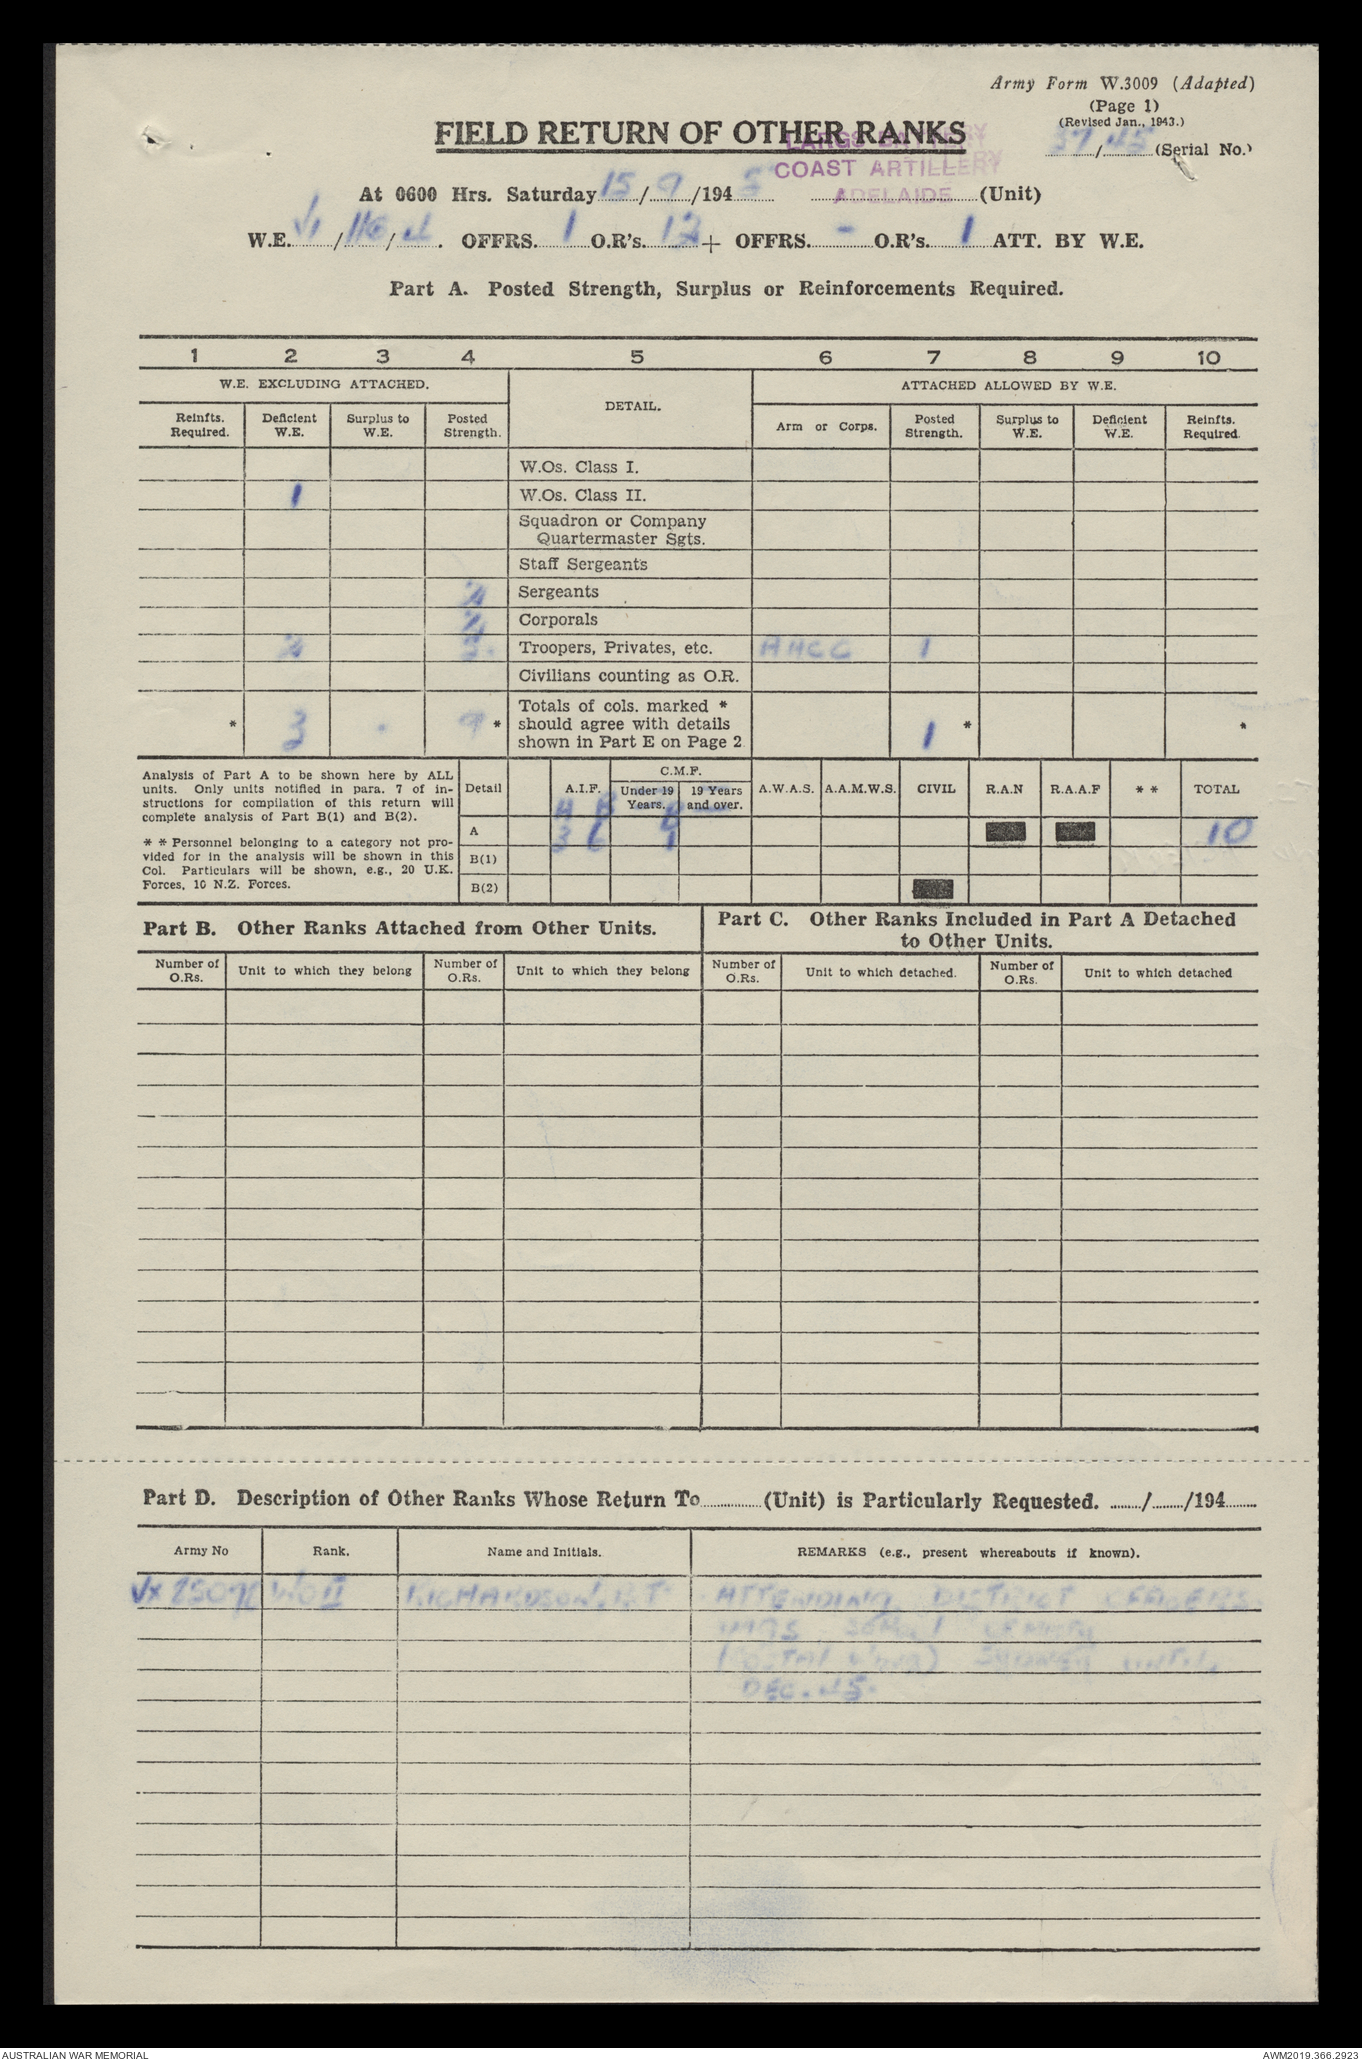 Army Form W.3009 (Adapted)
(Page 1)
(Revised Jan., 1943.)
FIELD RETURN OF OTHER RANKS
37/45 (Serial No.)
LARGS BATTERY
COAST ARTILLERY
ADELAIDE
At 0600 Hrs. Saturday 15/9/1945 (Unit)
W.E. VI/116/ . OFFRS. 1 O.R's. 12 + OFFRS. - O.R's. 1 ATT. BY W.E.
Part A. Posted Strength, Surplus or Reinforcements Required.
1 2 3 4 5 6 7 8 9 10
W.E. EXCLUDING ATTACHED. DETAIL. ATTACHED ALLOWED BY W.E.
Reinfts. Required. Deficient W.E. Surplus to W.E. Posted Strength. Arm or Corps. Posted Strength. Surplus to W.E. Deficient W.E. Reinfts. Required.
W.Os. Class I.
1 W.Os. Class II.
Squadron or Company
Quartermaster Sgts.
Staff Sergeants
2 Sergeants
2 Corporals
2 5 Troopers, Privates, etc. 1
Civilians counting as O.R.
Totals of cols. marked *
* 3 - 9 * should agree with details * *
shown in Part E on Page 2 1
Analysis of Part A to be shown here by ALL
units. Only units notified in para. 7 of in-
structions for compilation of this return will
complete analysis of Part B(1) and B(2).
* * Personnel belonging to a category not pro-
vided for in the analysis will be shown in this
Col. Particulars will be shown, e.g., 20 U.K.
Forces, 10 N.Z. Forces.
C.M.F.
Detail A.I.F. Under 19 Years. 19 Years and over. A.W.A.S. A.A.M.W.S. CIVIL R.A.N R.A.A.F * * TOTAL
A B B
A 3 6 1 10
B(1)
B(2)
Part B. Other Ranks Attached from Other Units.
Part C. Other Ranks Included in Part A Detached
to Other Units.
Number of O.Rs. Unit to which they belong Number of O.Rs. Unit to which they belong Number of O.Rs. Unit to which detached. Number of O.Rs. Unit to which detached
Part D. Description of Other Ranks Whose Return To (Unit) is Particularly Requested. / /194
Army No Rank. Name and Initials. REMARKS (e.g., present whereabouts if known).
WO II RICHARDSON, ATTENDING DISTRICT OFFICERS
SYDNEY UNTIL
DEC. 45.
AUSTRALIAN WAR MEMORIAL
AWM2019.366.2923